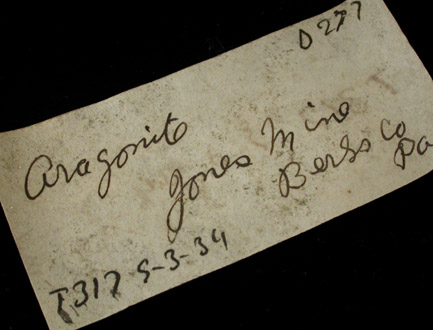 D277
Aragonite
Jones Mine
Berks Co
Pa
T317 5-3-34